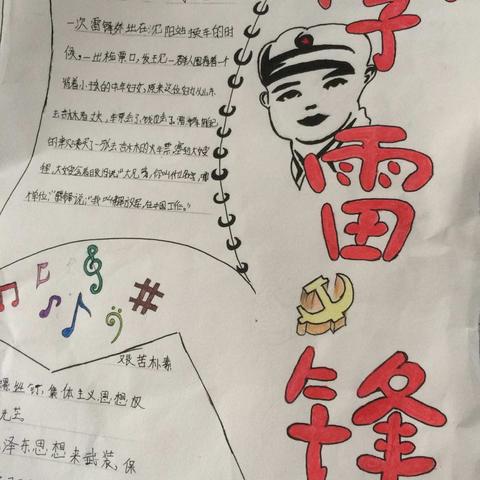 一次雷锋外出在沈阳站换车的时
候,一出检票口,发现一群人围着一个
背着小孩的中年妇女,原来这位妇女从山东
去吉林看丈夫,车票和钱丢了。
的津贴买了一张去吉林的火车票,塞到大嫂
大嫂含着眼泪说:"大兄弟,你叫什么名字,哪
单位"雷锋说:"我叫解放军,住在中国。"
艰苦朴素
螺丝钉,集体主义思想权
泽东思想来武装,保
学
雷
锋